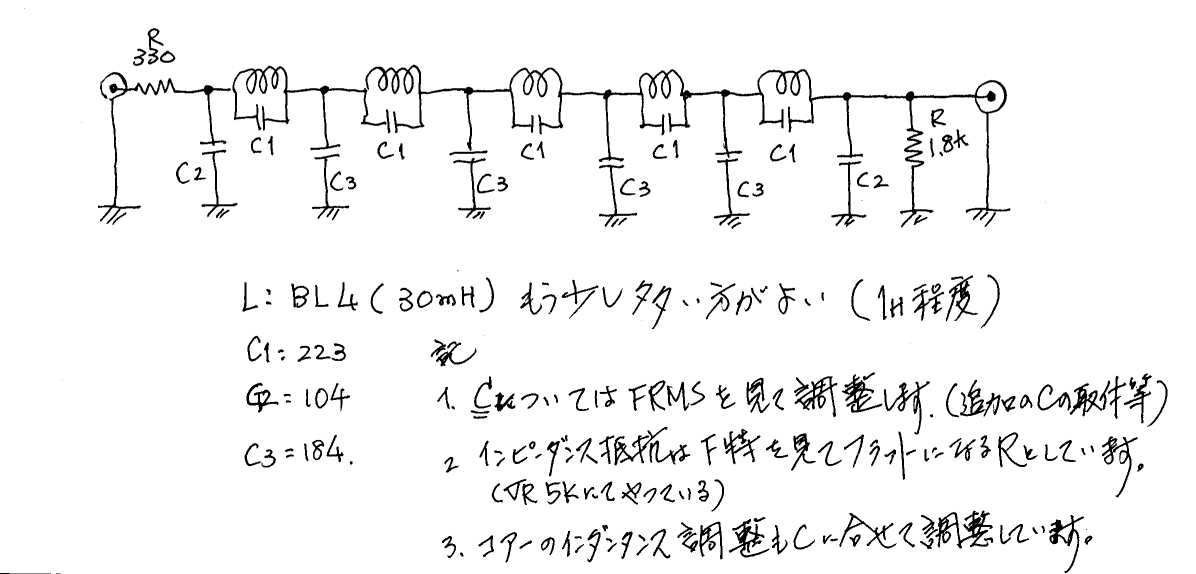 R
330
C1 C1 C1 C1 C1
R
1.8k
C2 C3 C3 C3 C3 C2
L: BL4 (30mH) もう少し多い方がよい (1H程度)
C1: 223 記
C2 = 104 1. CについてはFRMSを見て調整します.(追加のCの取付等)
C3 = 184. 2 インピーダンス抵抗はF特を見てフラットになるRとしています。
(VR 5Kにてやっている)
3. コアーのインダンタンス調整もCに合せて調整しています。